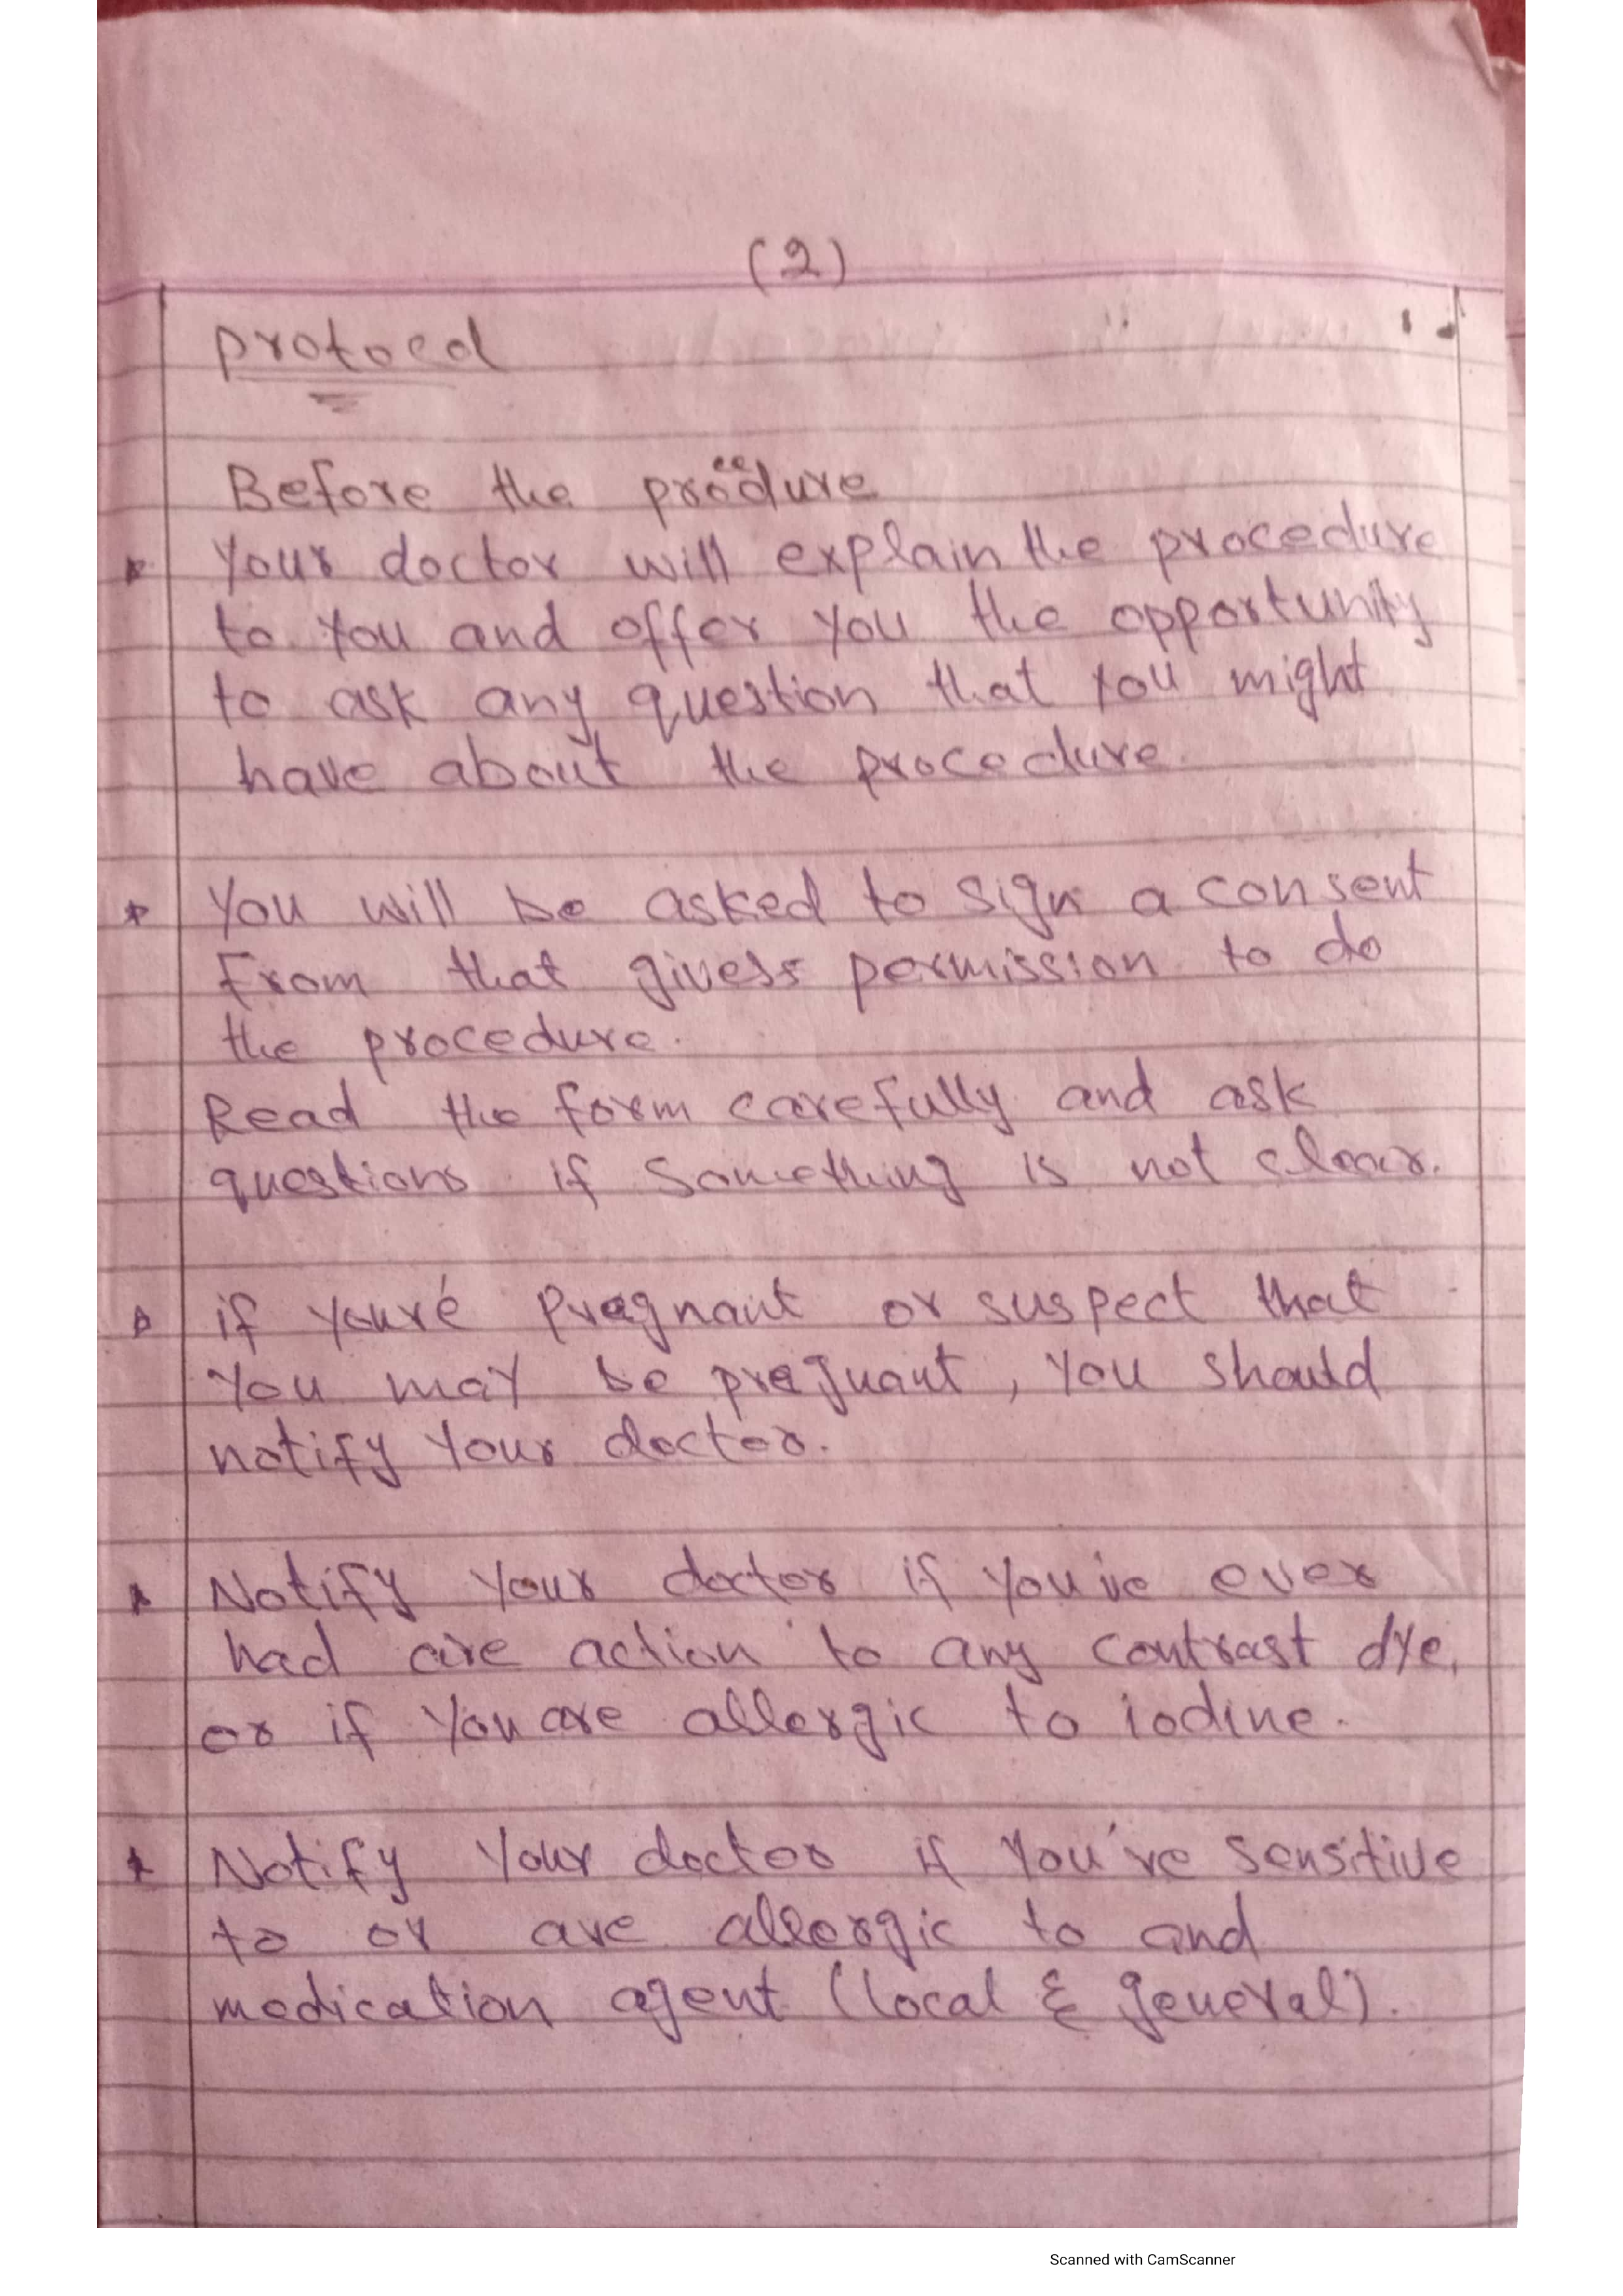 (2)
protocol
Before the procedure
Your doctor will explain the procedure
to you and offer you the opportunity
to ask any question that you might
have about the procedure.
* You will be asked to sign a consent
From that givess permission to do
the procedure.
Read the form carefully and ask
questions if something is not clear.
if you're pregnant or suspect that
you may be pregnant, you should
notify your doctor.
Notify your doctor if you've ever
had are action to any contrast dye,
or if you are allergic to iodine.
* Notify your doctor if you've sensitive
to or are allergic to and
medication agent (local & general).
Scanned with CamScanner